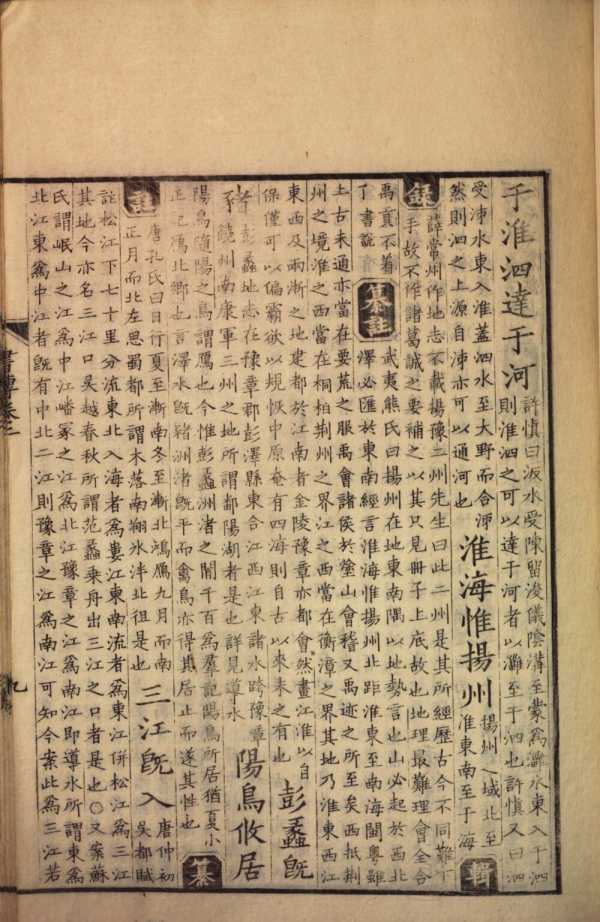 于淮泗達于河
許慎曰汳水受陳留浚儀陰溝至蒙為灉水東入于泗
則淮泗之可以達于河者以灉至于泗也許慎又曰泗
受泲水東入淮蓋泗水至大野而合泲
然則泗之上源自泲亦可以通河也
淮海惟揚州
揚州之域北至
淮東南至于海
輯
錄
薛常州作地志不載揚豫二州先生曰此二州是其所經歷古今不同難下
手故不作諸葛誠之要補之以其只見冊子上底故也地理最難理會全合
禹貢不著
了書說
纂註
武夷熊氏曰揚州在地東南隅以地勢言也山必起於西北
澤必匯於東南經言淮海惟揚州北距淮東至南海閩粵雖
上古未通亦當在要荒之服禹會諸侯於塗山會稽又禹迹之所至矣西抵荆
州之境淮之西當在桐柏荆州之界江之西當在衡漳之界其地乃淮東西江
東西及兩漸之地建都於江南者金陵豫章亦都會然畫江淮以自
保僅可以偏霸欲以規恢中原奄有四海則自古以來未之有也
彭蠡旣
豬
彭蠡地志在豫章郡彭澤縣東合江西江東諸水跨豫章
饒州南康軍三州之地所謂鄱陽湖者是也詳見導水
陽鳥攸居
陽鳥隨陽之鳥謂鴈也今惟彭蠡洲渚之間千百爲羣記陽鳥所居猶夏小
正記鴈北鄉也言澤水旣豬洲渚旣平而禽鳥亦得其居止而遂其性也
纂
註
唐孔氏曰日行夏至漸南冬至漸北鴻鴈九月而南
正月而北左思蜀都所謂木落南翔水泮北徂是也
三江旣入
唐仲初
吳都賦
註松江下七十里分流東北入海者爲婁江東南流者爲東江併松江爲三江
其地今亦名三江口吳越春秋所謂范蠡乘舟出三江之口者是也○又案蘇
氏謂岷山之江爲中江嶓冢之江爲北江豫章之江爲南江即導水所謂東爲
北江東爲中江者旣有中北二江則豫章之江爲南江可知今案此爲三江若
書傳卷
九